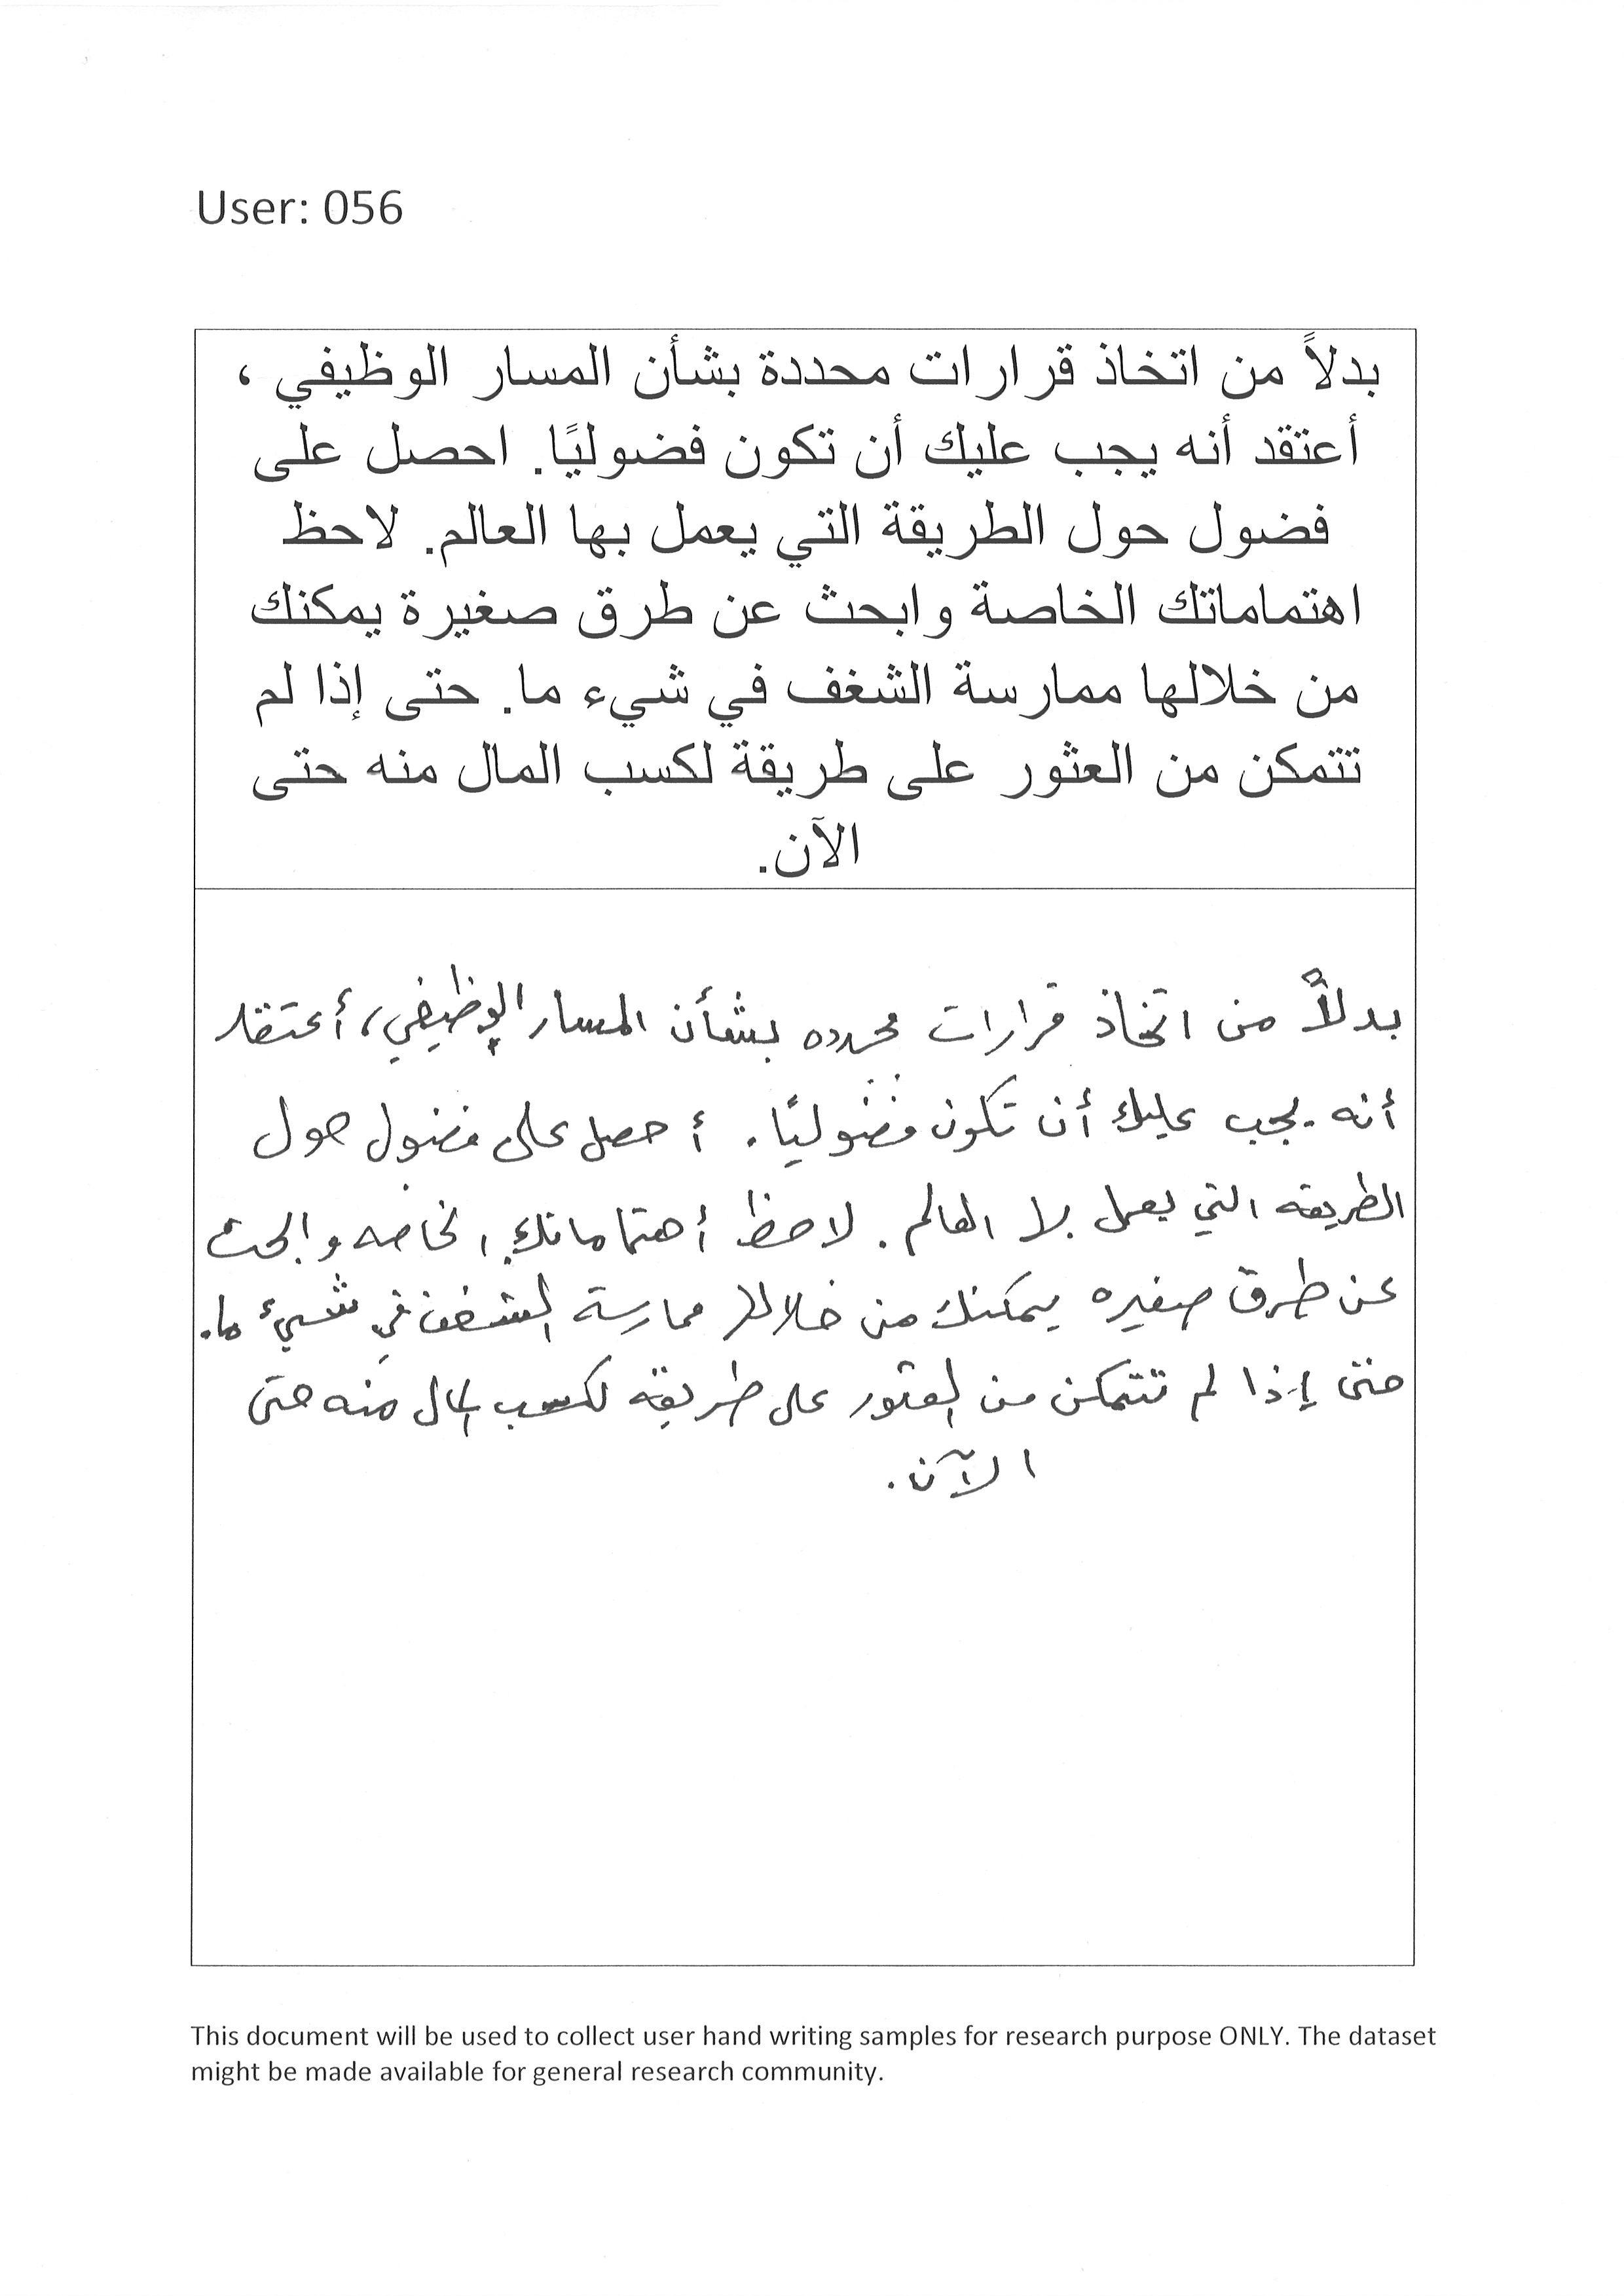 User: 056
بدلاً من اتخاذ قرارات محددة بشأن المسار الوظيفي ،
أعتقد أنه يجب عليك أن تكون فضوليًا. احصل على
فضول حول الطريقة التي يعمل بها العالم. لاحظ
اهتماماتك الخاصة وابحث عن طرق صغيرة يمكنك
من خلالها ممارسة الشغف في شيء ما. حتى إذا لم
تتمكن من العثور على طريقة لكسب المال منه حتى
الآن.
بدلاً من اتخاذ قرارات محدده بشأن المسار الوظيفي، أعتقد
أنه يجب عليك أن تكون فضوليًا. أحصل على فضول حول
الطريقه التي يعمل بها العالم. لاحظ أهتماماتك الخاصه وابحث
عن طرق صغيره يمكنك من خلالها ممارسة الشغف في شيء ما.
حتى إذا لم تتمكن من العثور على طريقة لكسب المال منه حتى
الآن.
This document will be used to collect user hand writing samples for research purpose ONLY. The dataset
might be made available for general research community.